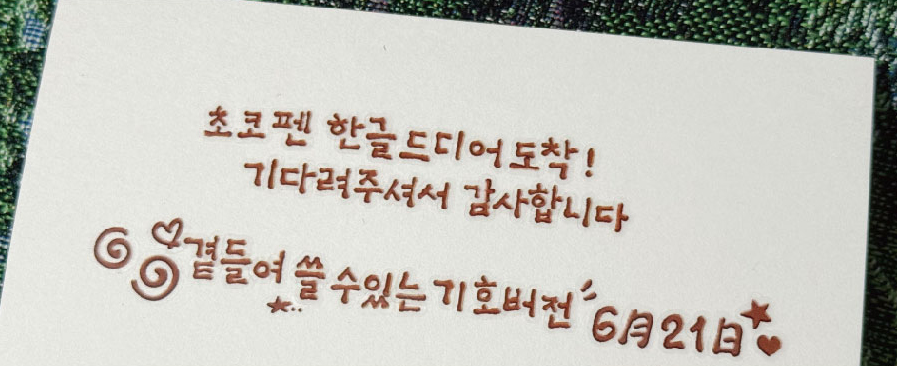 초코펜 한글드디어 도착!
기다려주셔서 감사합니다
곁들여 쓸 수있는 기호버전
6月21日